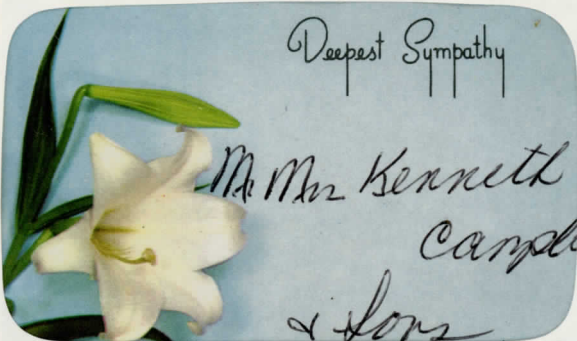 Deepest Sympathy
Mr Mrs Kenneth
& Sons